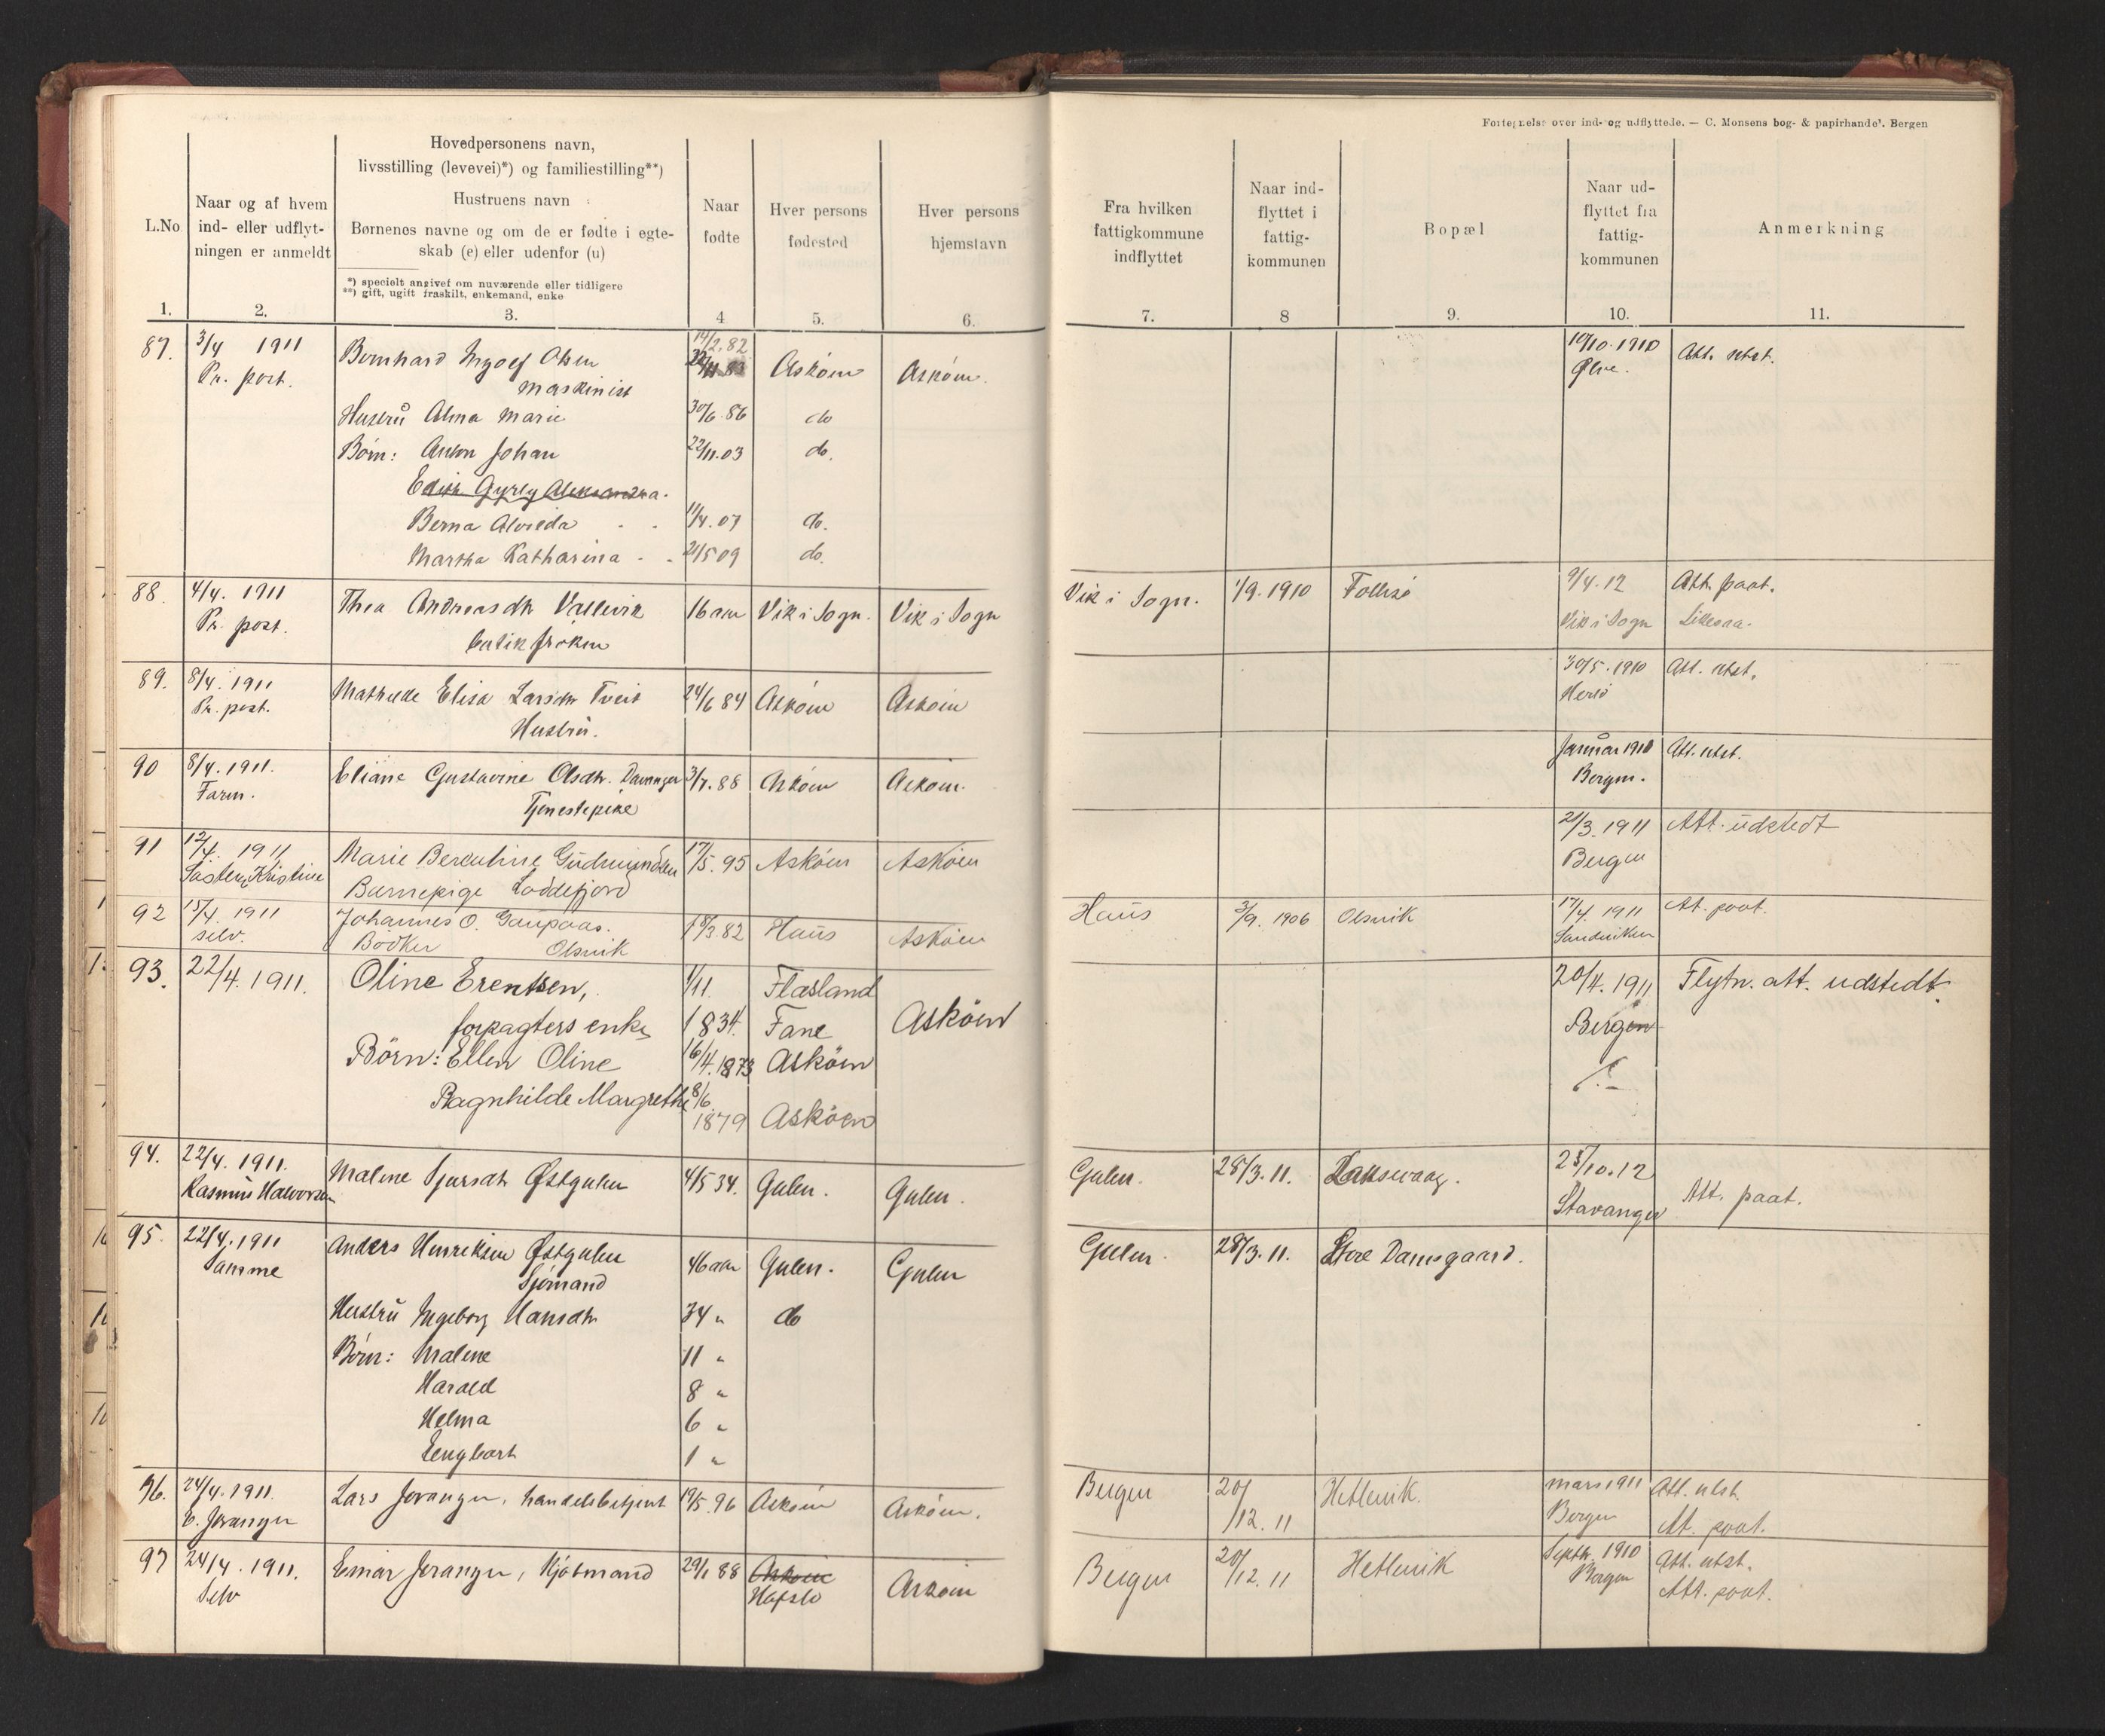 Fortegnelse over ind- og udflyttede. — C. Monsens bog- & papirhandel. Bergen
L.No
Naar og af hvem
ind- eller udflyt-
ningen er anmeldt
Hovedpersonens navn,
livsstilling (levevei)*) og familiestilling**)
Hustruens navn
Børnenes navne og om de er fødte i egte-
skab (e) eller udenfor (u)
*) specielt angivet om nuværende eller tidligere
**) gift, ugift fraskilt, enkemand, enke
Naar
fødte
Hver persons
fødested
Hver persons
hjemstavn
Fra hvilken
fattigkommune
indflyttet
Naar ind-
flyttet i
fattig-
kommunen
Bopæl
Naar ud-
flyttet fra
fattig-
kommunen
Anmerkning
1. 2. 3. 4 5. 6. 7. 8 9. 10. 11.
87. 3/4 1911 14/2.82 19/10.1910 Att. utst.
Pr. post. Bernhard Ingolf Olsen Askøen Askøen.
maskinist
Hustru Alma Marie 30/6.86 do
Børn: Anton Johan 22/11.03 do.
Edith Gyrly Aleksandra.
Berna Alvilda 11/4.07 do.
Martha Katharina 21/5 09 do.
88. 4/4. 1911 Thea Andreasdtr 16 aar Vik i Sogn. Vik i Sogn Vik i Sogn. 1/9.1910 9/4.12 Att. paat.
Pr. post. Vik i Sogn
frøken
89. 8/4. 1911 Elisa Larsdtr Tveit 24/6 84 Askøen Askøen 30/5.1910 Att. utst.
Pr. post. Herlø
Hustru.
90 8/4.1911. Eliane Gustavine Olsdtr. 3/7.88 Askøen Askøen. Januar 1910 Att. utst.
Farm. Bergen.
Tjenestepike
91 12/4. 1911 Marie 17/5.95 Askøen Askøen 21/3.1911 Att. udstedt
Søster, Kristine Bergen
Barnepige Loddefjord
92 15/4. 1911 Johannes O. Gaupaas. 18/3 82 Haus Askøen Haus 3/9.1906 Olsvik 17/4 1911 At. paat.
selv. Bødker Olsvik Sandviken
93. 22/4.1911. Oline Erentsen, 1/11 Flasland 20/4.1911 Flytn. att. udstedt.
forpagters enke 1834. Fane Askøen Bergen
Børn: Ellen Oline 16/4.1873 Askøen
Ragnhilde Margrethe 8/6
1879 Askøen
94. 22/4.1911. Malene Østgulen 4/5 34. Gulen. Gulen. Gulen. 28/3.11. Laksevaag. 25/10.12
Rasmus Halvorsen Stavanger Att. paat.
95. 22/4.1911 Anders Henriksen Østgulen 46 aar Gulen. Gulen Gulen. 28/3.11. Store Damsgaard.
Samme Sjømand
Hustru Ingeborg Hansdtr 34 " do
Børn: Malene 11 "
Harald 8 "
Helma 6 "
Engbart 1 "
96. 24/4.1911. Lars Joranger, handelsbetjent 19/5.96 Askøen Askøen. Bergen 20/12.11 Hetlevik. mars 1911 Att. utst.
E. Joranger Bergen At. paat.
97 24/4.1911. Einar Joranger, Kjøbmand 29/1 88 Askøen Askøen Bergen 20/12.11 Hetlevik Septbr. 1910 Att. utst.
Selv Hafslo Bergen Att. paat.